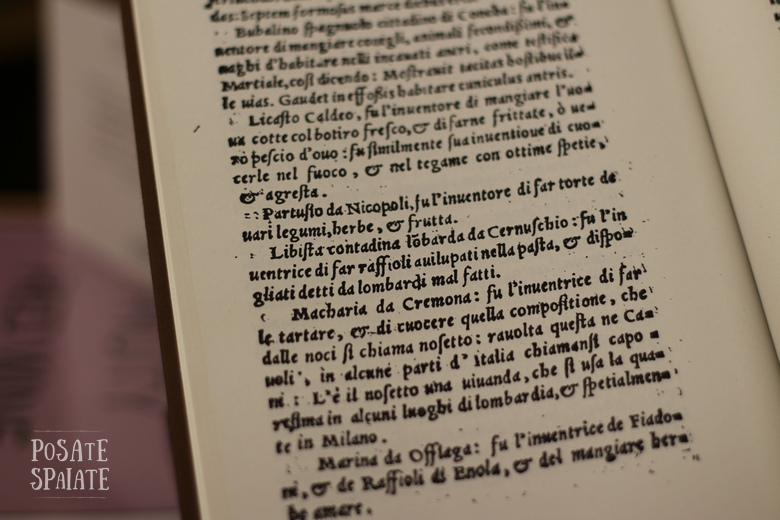 des: Septem formosus merce
Bubalino spagnuolo cittadino di Conche: fu l'in-
uentore di mangiare conigli, animali fecondissimi, &
naghi d'habitare nelli incauati antri, come testifica
Martiale, cosi dicendo: Mostrauit tacitas hostibus ille
le uias. Gaudet in effossis habitare cuniculus antris.
Licasto Caldeo, fu l'inuentore di mangiare l'uoua
ua cotte col botiro fresco, & di farne frittate, ò ue-
rò pescio d'ouo: fu similmente sua inuentioue di cuo-
cerle nel fuoco, & nel tegame con ottime spetie,
& agresta.
Partufio da Nicopoli, fu l'inuentore di far torte de
uari legumi, herbe, & frutta.
Libista contadina lõbarda da Cernuschio: fu l'in
uentrice di far raffioli auiluppati nella pasta, & dispo-
gliati detti da lombardi mal fatti.
Macharia da Cremona: fu l'inuentrice di far
le tartare, & di cuocere quella compositione, che
dalle noci si chiama nosetto: rauolta questa ne Ca-
uoli, in alcune parti d'italia chiamansi capo
ni: L'è il nosetto una uiuanda, che si usa la qua-
resima in alcuni luoghi di lombardia, & spetialmen-
te in Milano.
Marina da Offlaga: fu l'inuentrice de Fiado-
ni, & de Raffioli di Enola, & del mangiare her-
be amare.
POSATE
SPAIATE